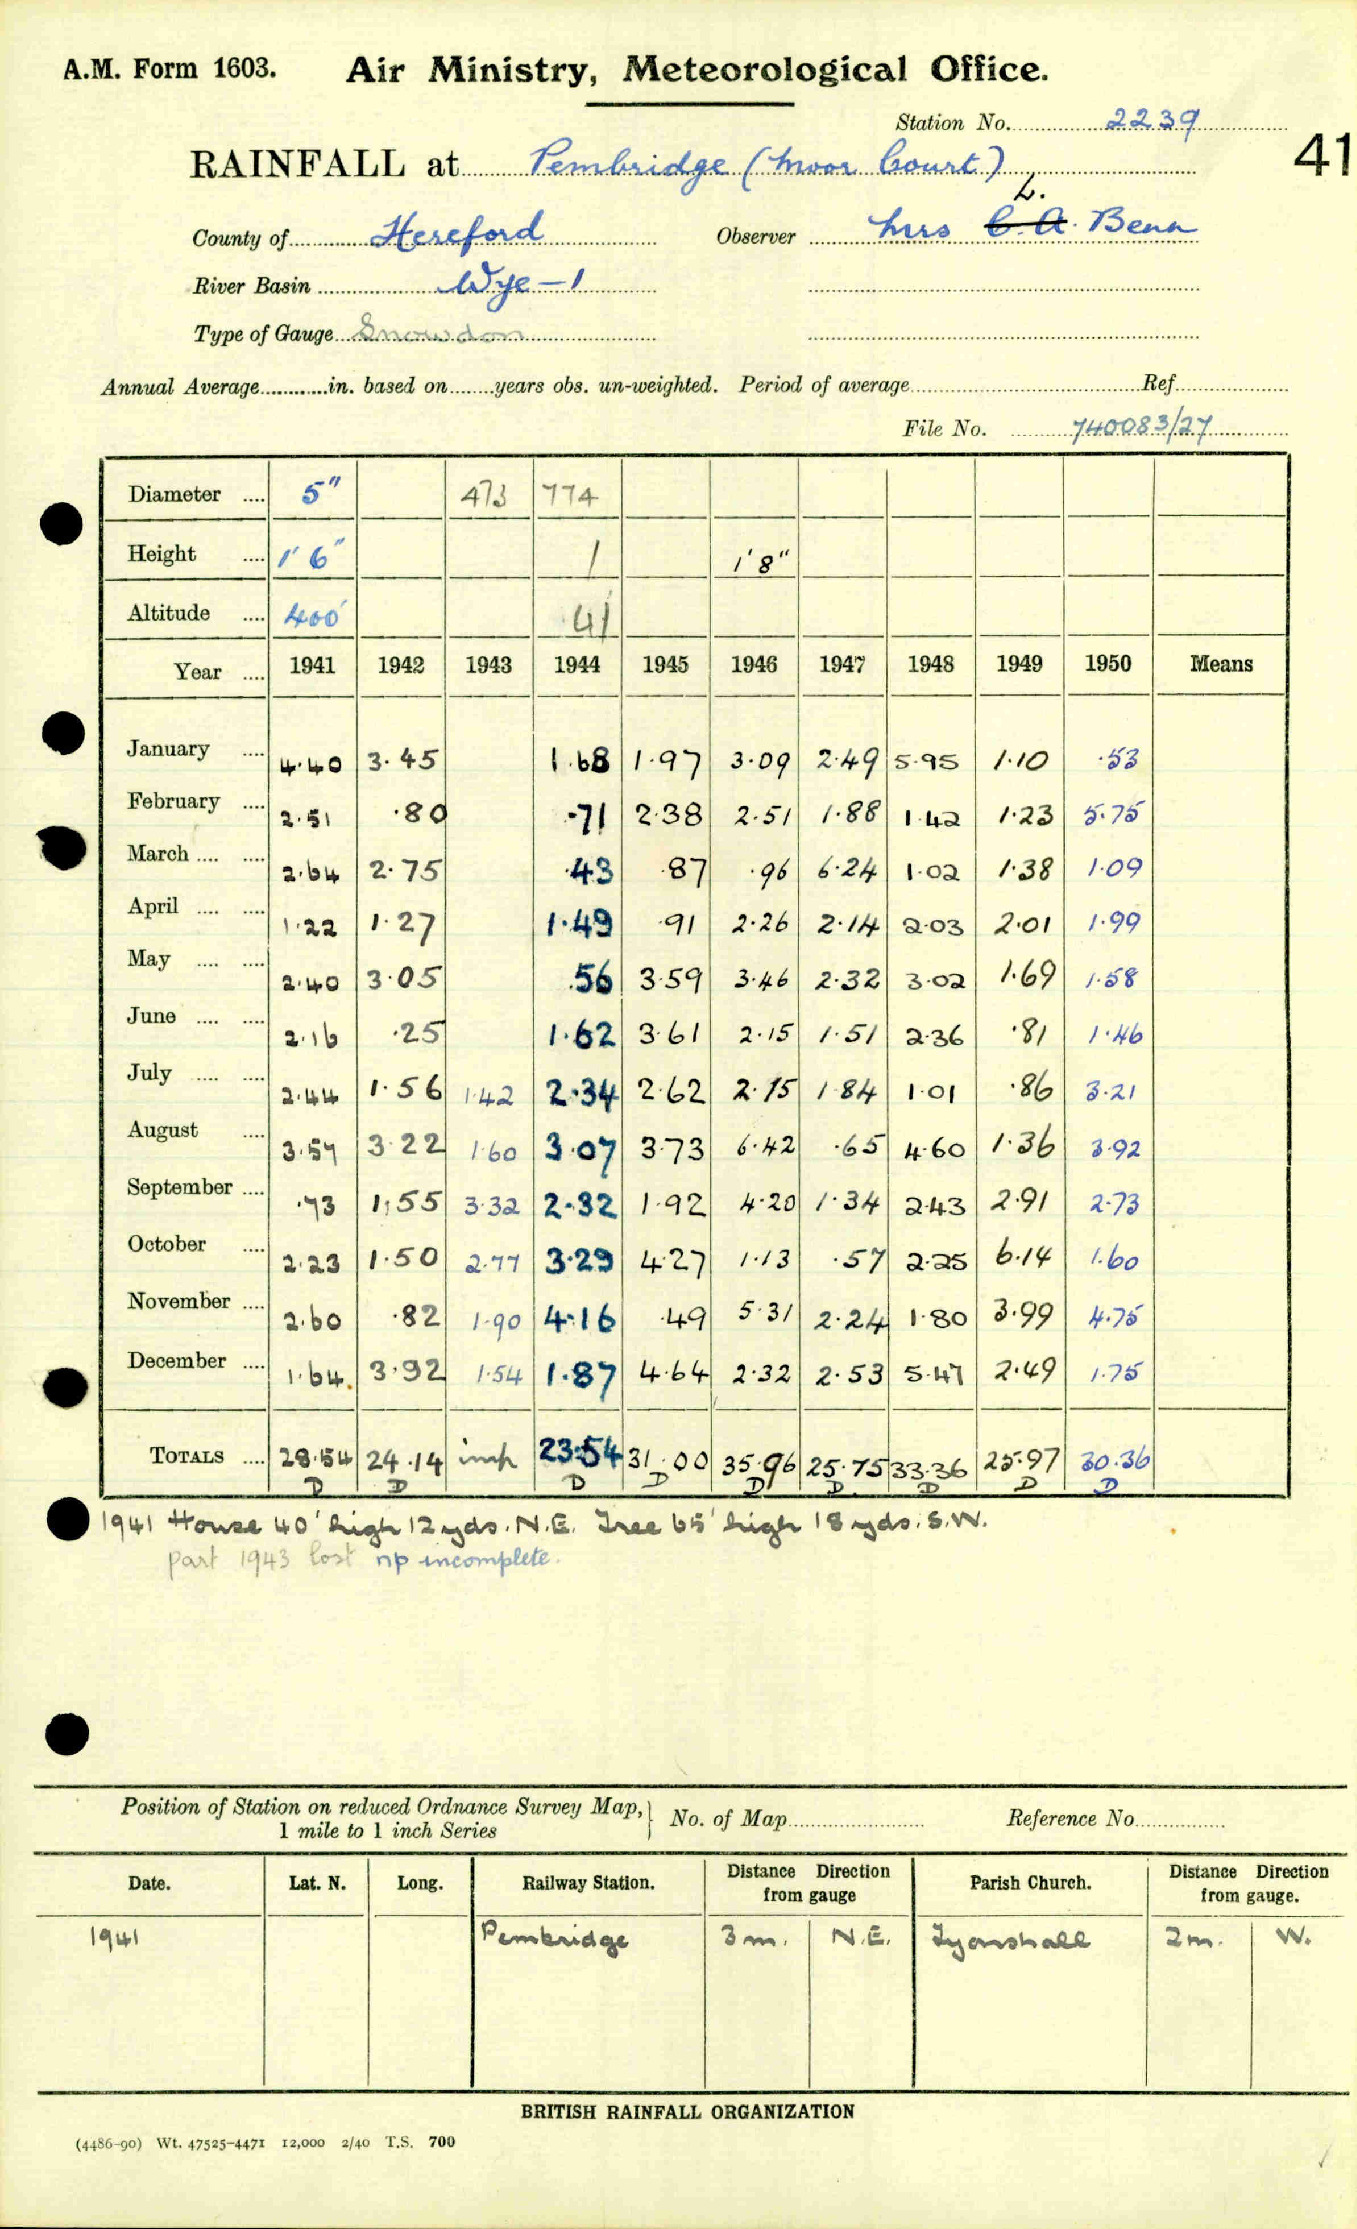 A.M. Form 1603. Air Ministry, Meteorological Office.
Station No. 2239
41
RAINFALL at Pembridge (Moor Court)
L.
County of Hereford Observer Mrs C. A. Benn
River Basin Wye-1
Type of Gauge Snowdon
Annual Average in. based on years obs. un-weighted. Period of average Ref.
File No. 740083/27
Diameter 5" 473 774
Height 1' 6" / 1'8"
Altitude 400' 41
Year 1941 1942 1943 1944 1945 1946 1947 1948 1949 1950 Means
January 4.40 3.45 1.68 1.97 3.09 2.49 5.95 1.10 .53
February 2.51 .80 .71 2.38 2.51 1.88 1.42 1.23 5.75
March 2.64 2.75 .43 .87 .96 6.24 1.02 1.38 1.09
April 1.22 1.27 1.49 .91 2.26 2.14 2.03 2.01 1.99
May 2.40 3.05 .56 3.59 3.46 2.32 3.02 1.69 1.58
June 2.16 .25 1.62 3.61 2.15 1.51 2.36 .81 1.46
July 2.44 1.56 1.42 2.34 2.62 2.15 1.84 1.01 .86 3.21
August 3.57 3.22 1.60 3.07 3.73 6.42 .65 4.60 1.36 3.92
September .73 1.55 3.32 2.32 1.92 4.20 1.34 2.43 2.91 2.73
October 2.23 1.50 2.77 3.29 4.27 1.13 .57 2.25 6.14 1.60
November 2.60 .82 1.90 4.16 .49 5.31 2.24 1.80 3.99 4.75
December 1.64 3.92 1.54 1.87 4.64 2.32 2.53 5.47 2.49 1.75
TOTALS 28.54 24.14 imp 23.54 31.00 35.96 25.75 33.36 25.97 30.36
D D D D D D D D D
1941 House 40' high 12 yds. N.E. Tree 65' high 18 yds. S.W.
part 1943 lost np incomplete.
Position of Station on reduced Ordnance Survey Map, No. of Map Reference No.
1 mile to 1 inch Series
Date. Lat. N. Long. Railway Station. Distance Direction from gauge Parish Church. Distance Direction from gauge.
1941 Pembridge 3 m. N.E. Lyonshall 2 m. W.
BRITISH RAINFALL ORGANIZATION
(4486-90) Wt. 47525-4471 12,000 2/40 T.S. 700